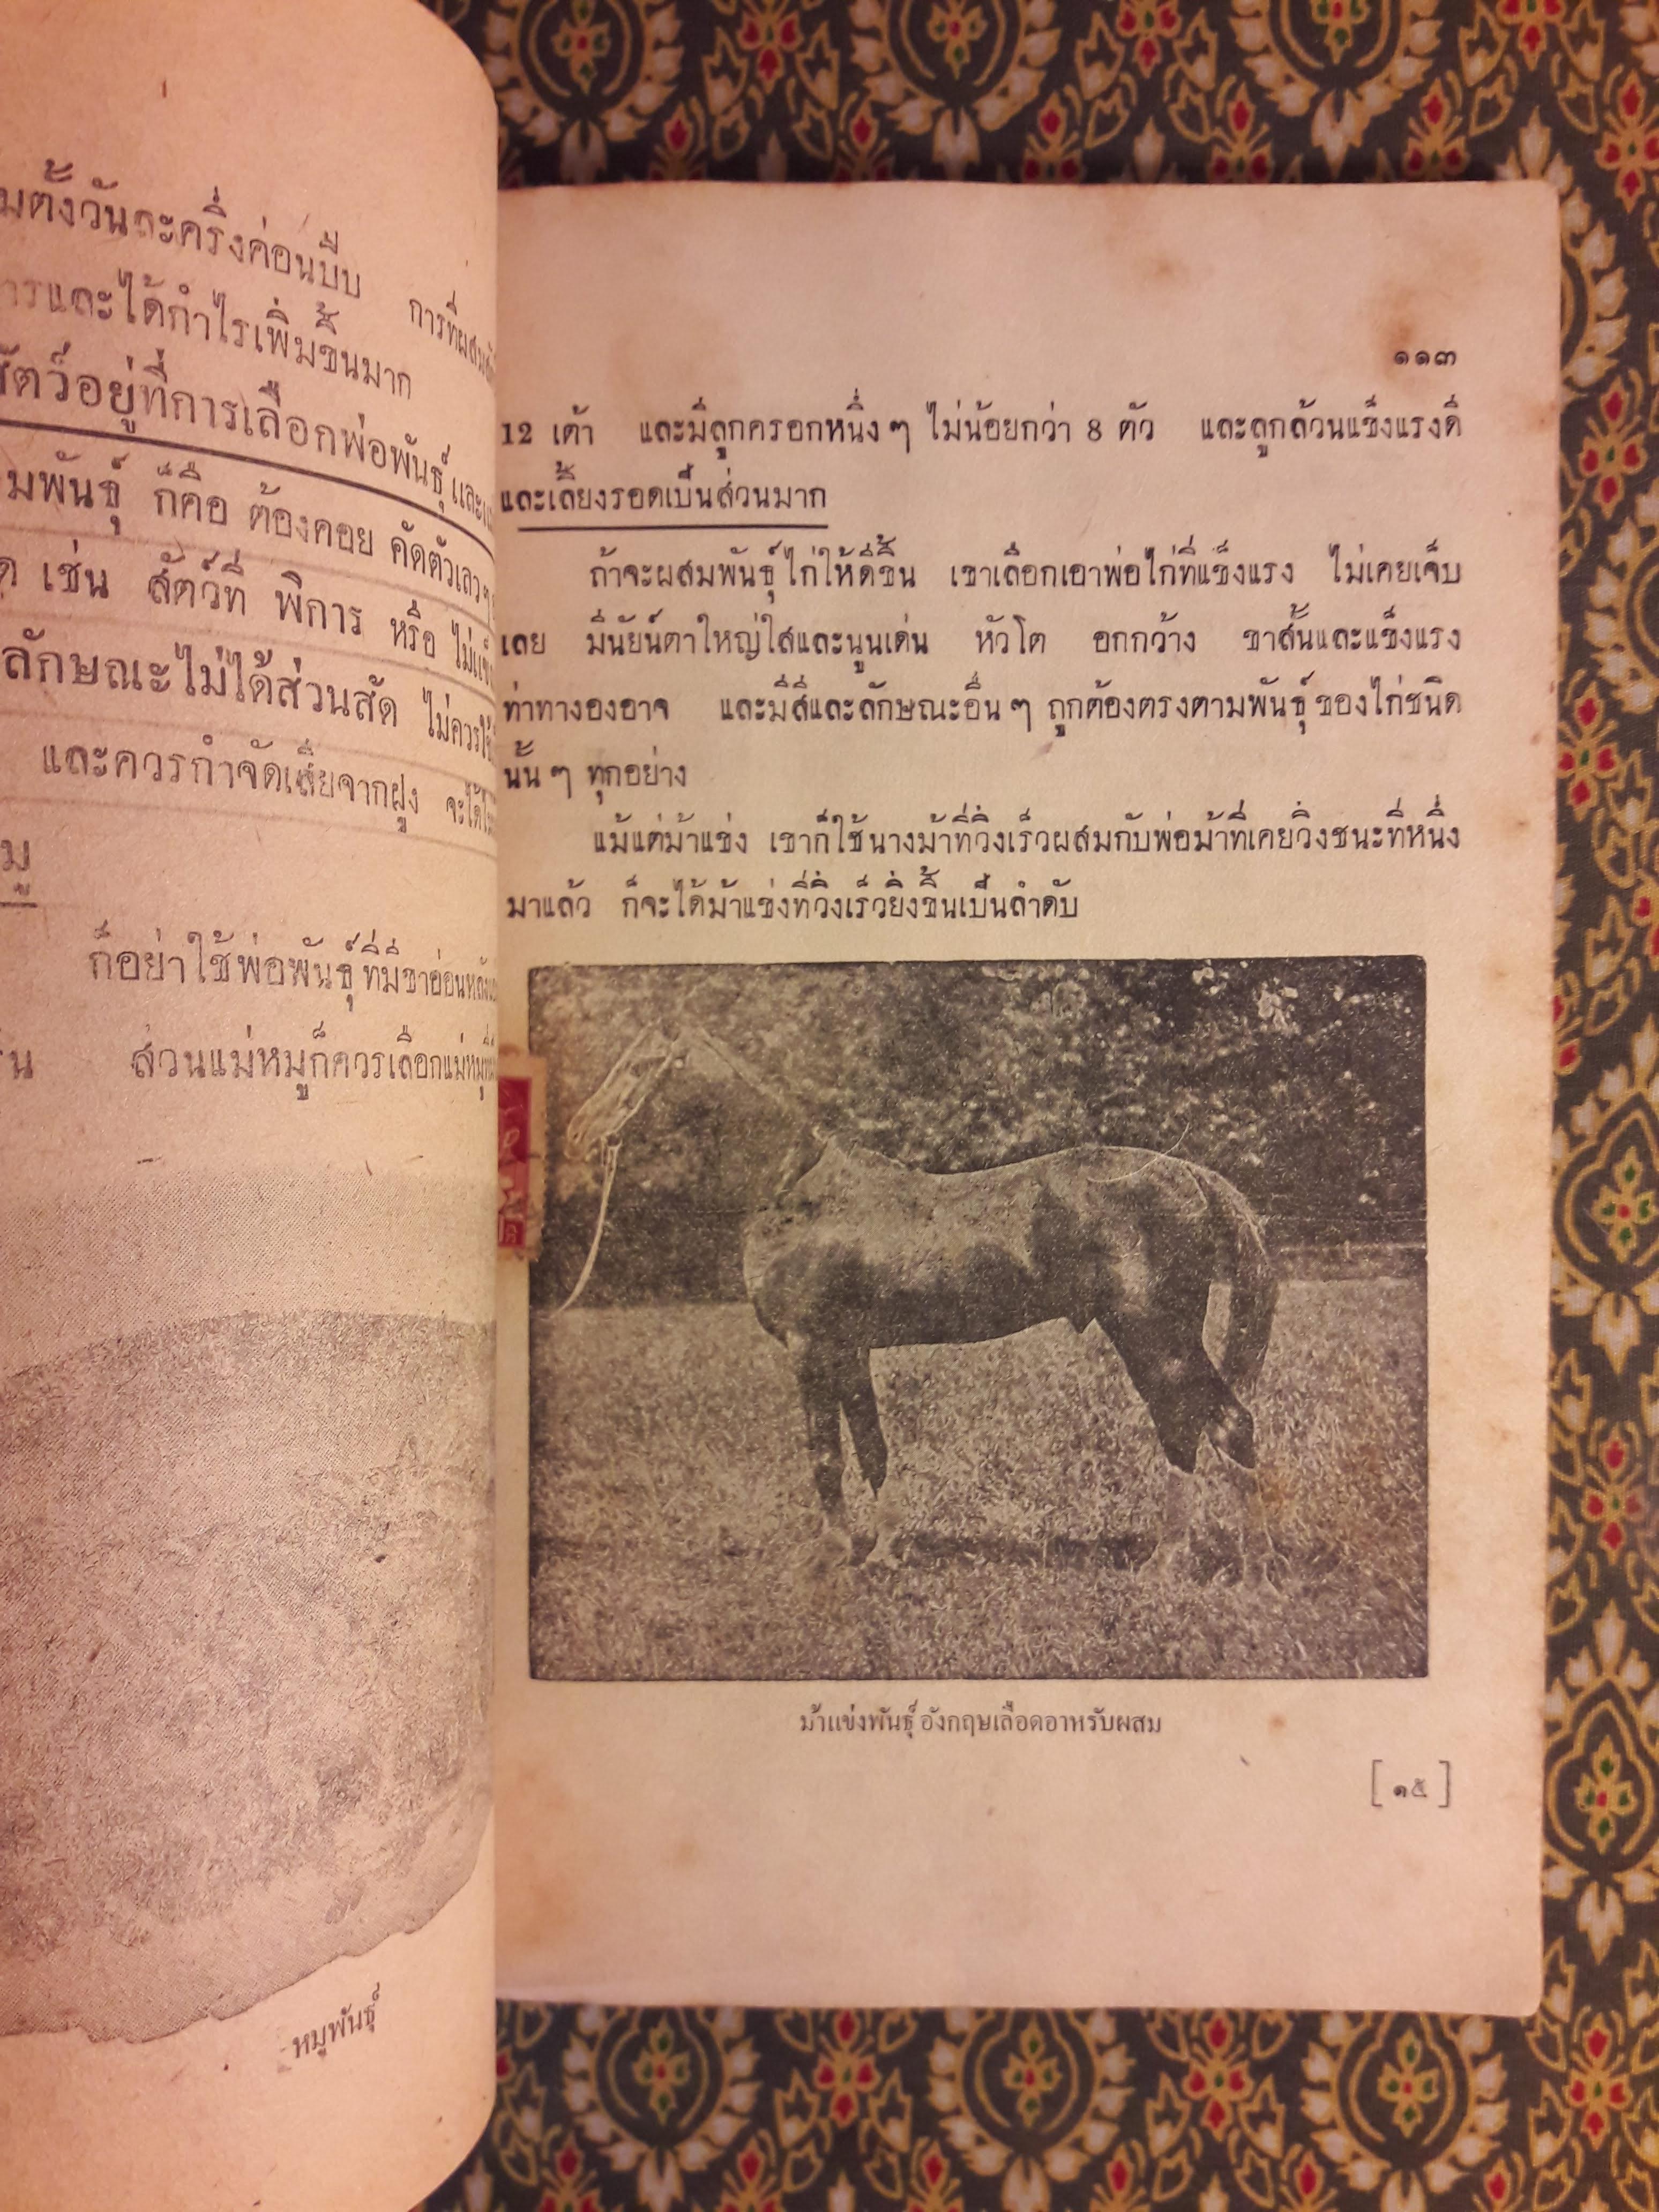 มตั้งวันละครึ่งค่อนปีบ การที่ผสม
ารและได้กำไรเพิ่มขึ้นมาก
สัตว์อยู่ที่การเลือกพ่อพันธุ์และ
มพันธุ์ ก็คือ ต้องคอย คัดตัวเลวๆ
ด เช่น สัตว์ที่ พิการ หรือ
ลักษณะไม่ได้ส่วนสัด ไม่ควรใช้
และควรกำจัดเสียจากฝูง
มู
ก็อย่าใช้พ่อพันธุ์ที่มีขาอ่อนหลัง
น ส่วนแม่หมูก็ควรเลือกแม่หมู
หมูพันธุ์
๑๑๓
12 เต้า และมีลูกครอกหนึ่งๆ ไม่น้อยกว่า 8 ตัว และลูกล้วนแข็งแรงดี
และเลี้ยงรอดเป็นส่วนมาก
ถ้าจะผสมพันธุ์ไก่ให้ดีขึ้น เขาเลือกเอาพ่อไก่ที่แข็งแรง ไม่เคยเจ็บ
เลย มีนัยน์ตาใหญ่ใสและนูนเด่น หัวโต อกกว้าง ขาสั้นและแข็งแรง
ท่าทางองอาจ และมีสีและลักษณะอื่นๆ ถูกต้องตรงตามพันธุ์ของไก่ชนิด
นั้นๆ ทุกอย่าง
แม้แต่ม้าแข่ง เขาก็ใช้นางม้าที่วิ่งเร็วผสมกับพ่อม้าที่เคยวิ่งชนะที่หนึ่ง
มาแล้ว ก็จะได้ม้าแข่งที่วิ่งเร็วยิ่งขึ้นเป็นลำดับ
ม้าแข่งพันธุ์อังกฤษเลือดอาหรับผสม
[๑๕]